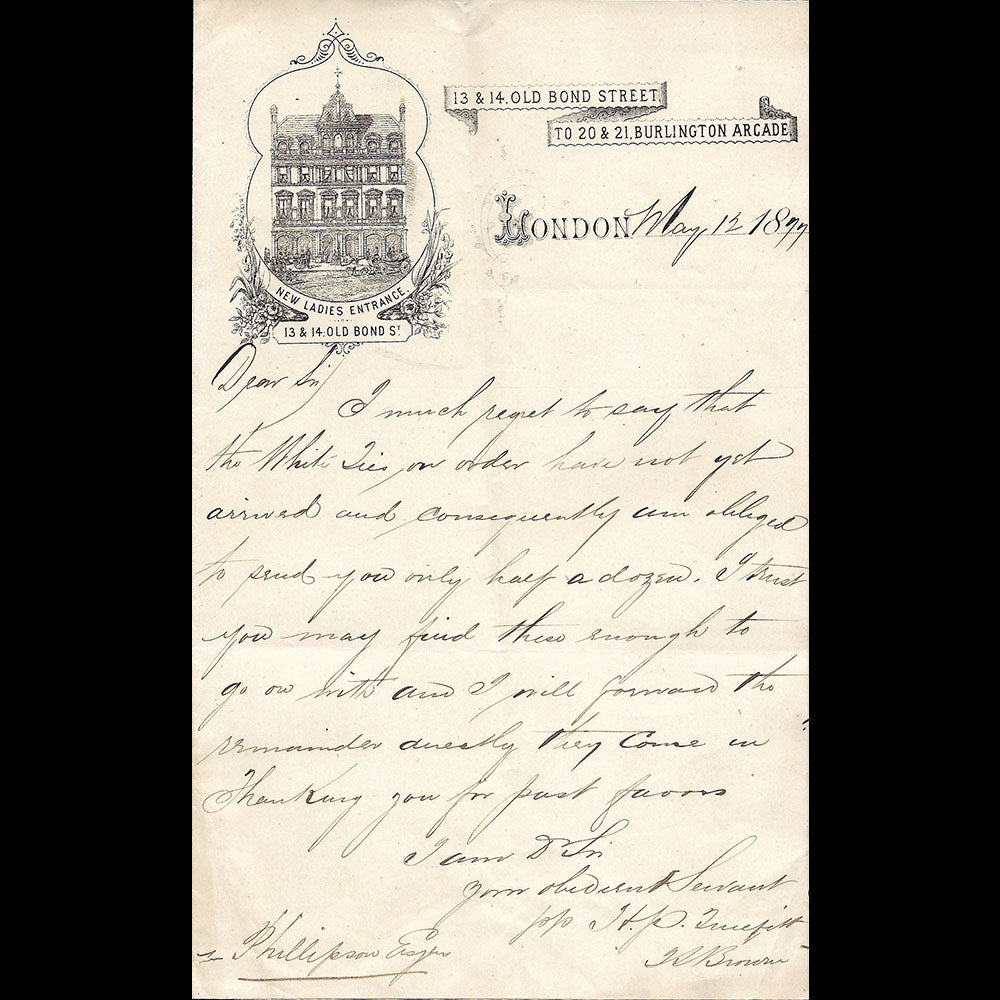 13 & 14, OLD BOND STREET
TO 20 & 21, BURLINGTON ARCADE
LONDON May 12 1877
NEW LADIES ENTRANCE.
13 & 14, OLD BOND ST
Dear Sir
I much regret to say that
the White Ties on order have not yet
arrived and consequently am obliged
to send you only half a dozen. I trust
you may find these enough to
go on with and I will forward the
remainder directly they come in
Thanking you for past favors
I am Dr Sir
your obedient Servant
pp H. P. Truefitt
Brown
Phillipson Esqre